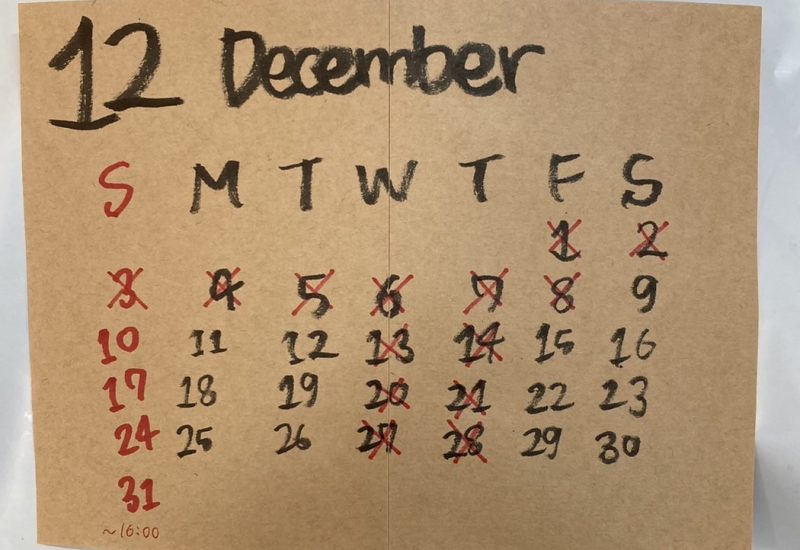 12 December
S M T W T F S
1 2
3 4 5 6 7 8 9
10 11 12 13 14 15 16
17 18 19 20 21 22 23
24 25 26 27 28 29 30
31
~16:00